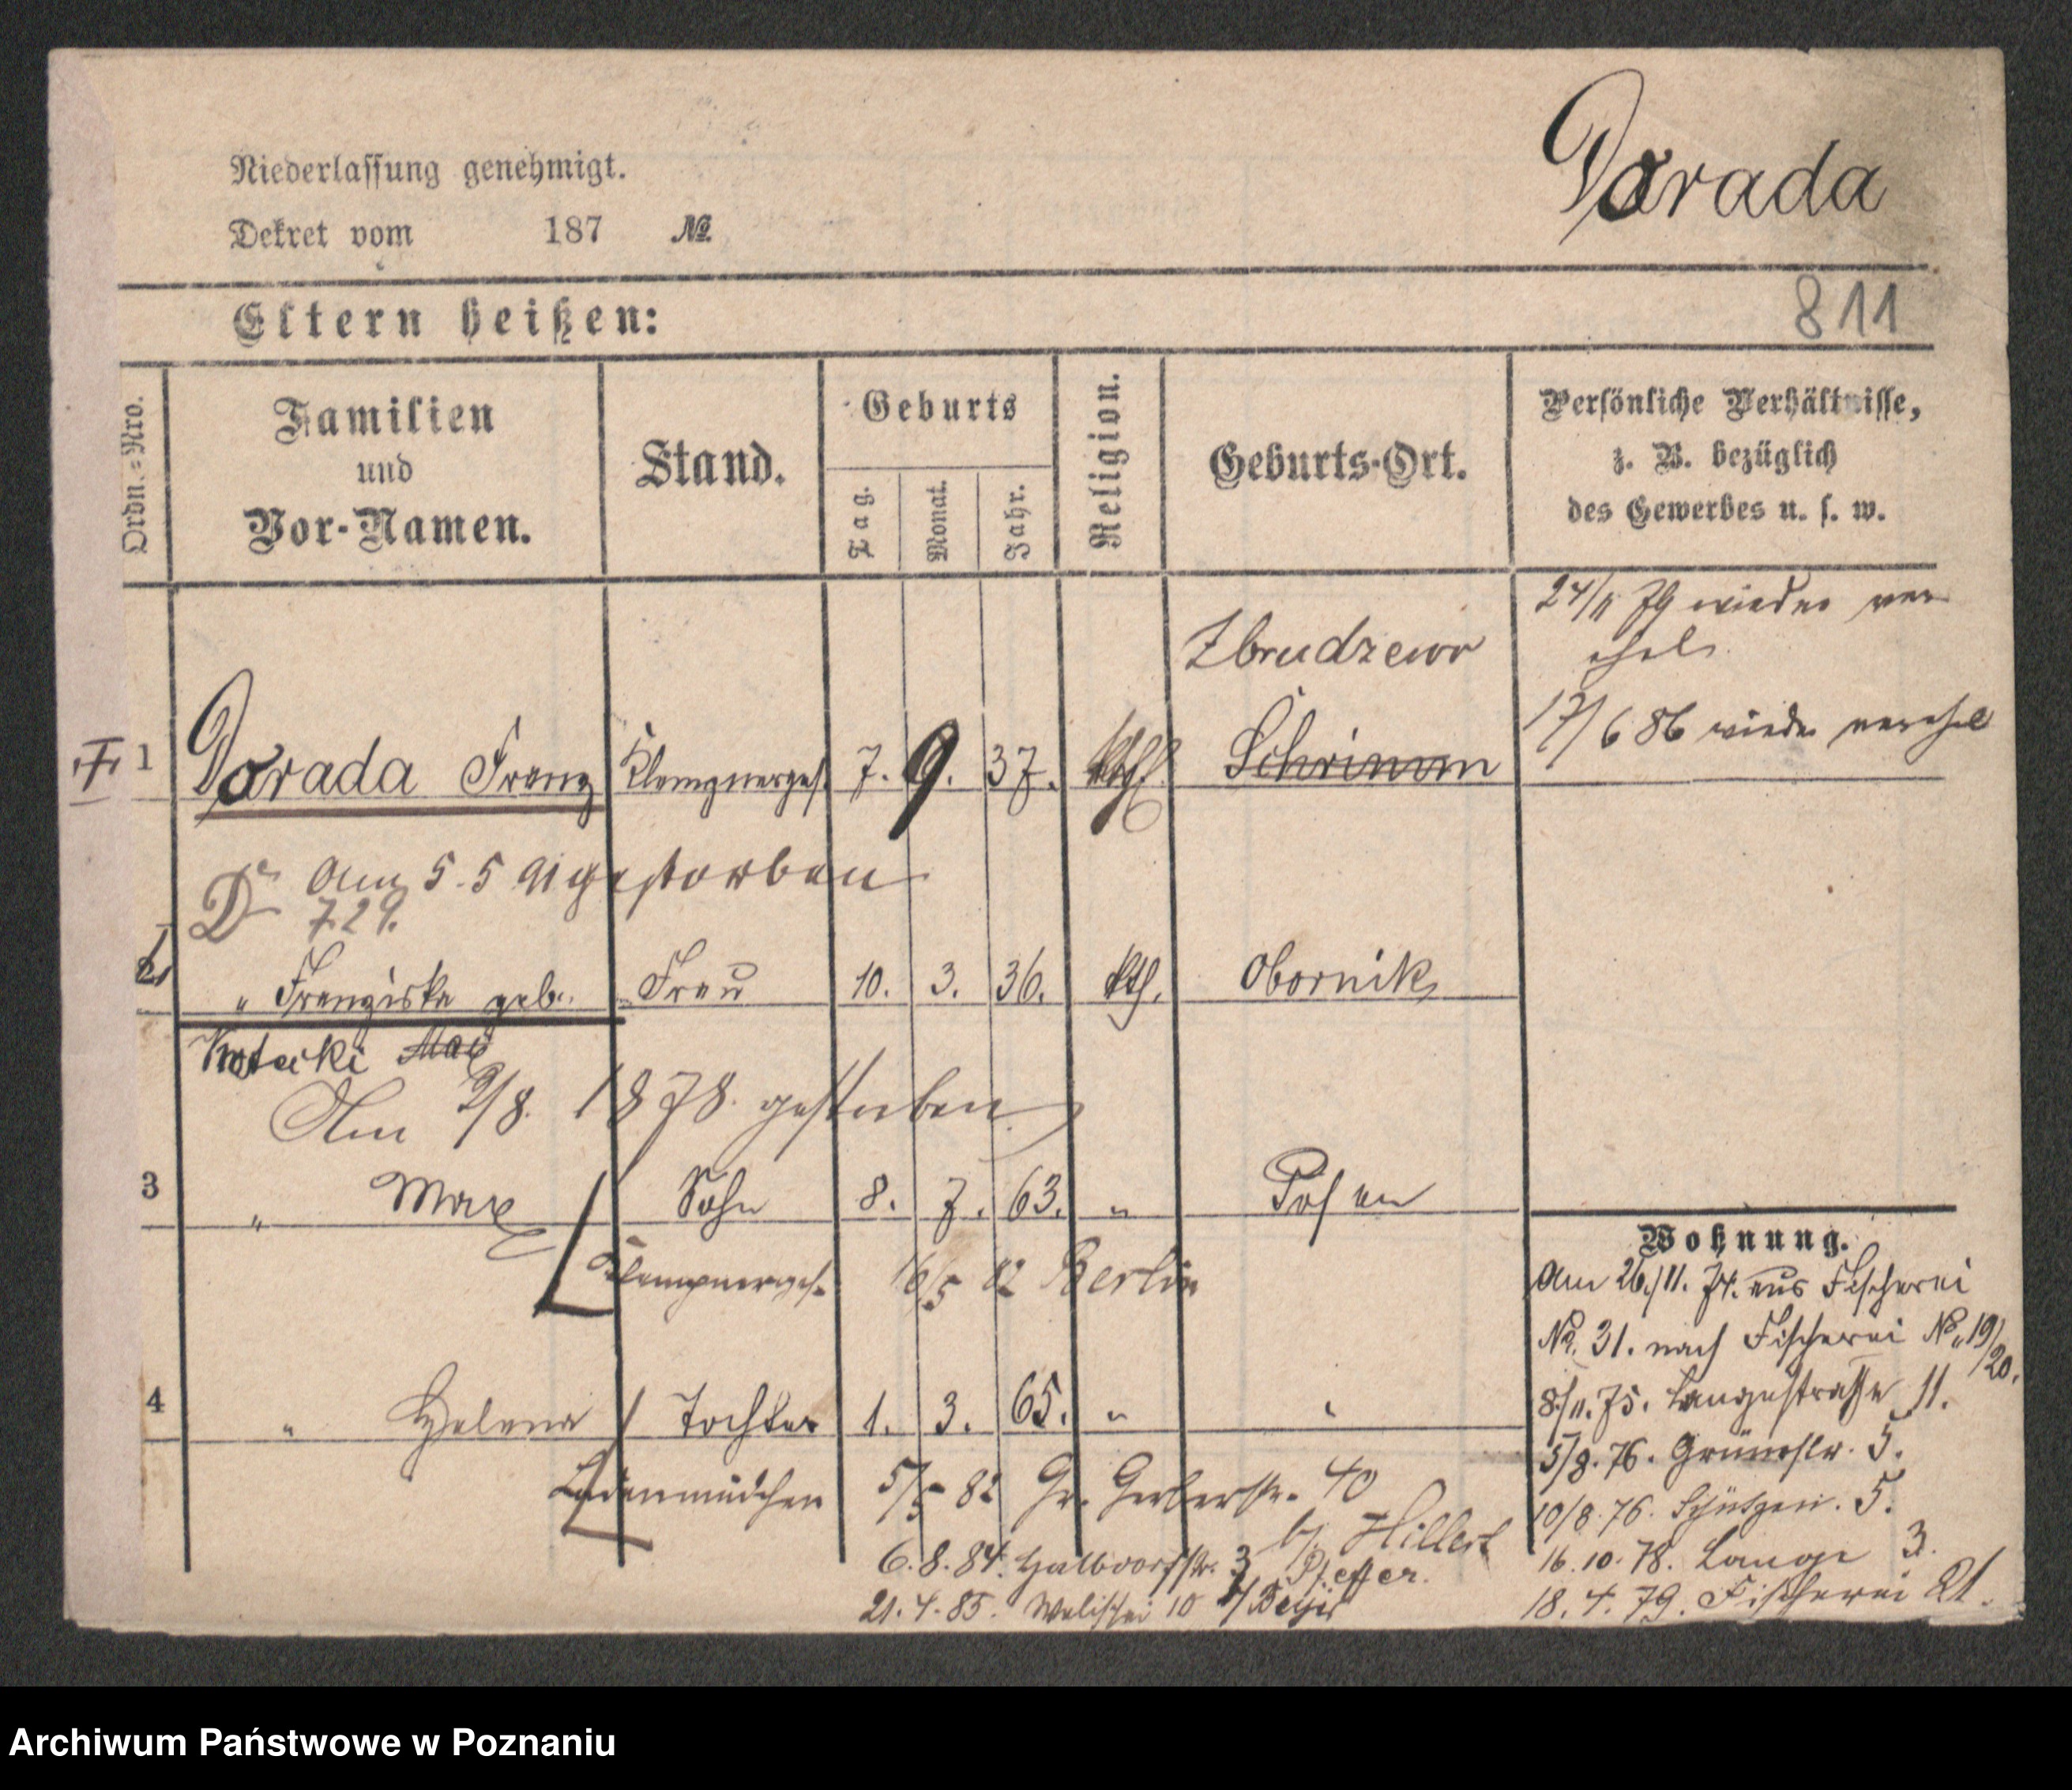 Niederlassung genehmigt.
Dekret vom 187 №
Dorada
811
Eltern heißen:
Ordn.-Nro.
Familien
und
Vor-Namen.
Stand.
Geburts
Tag.
Monat.
Jahr.
Religion.
Geburts-Ort.
Persönliche Verhältnisse,
z. B. bezüglich
des Gewerbes u. s. w.
24/11 79 wieder ver
ehel.
17/6 86 wieder verehel
Zbrudzewo
1 Dorada Franz Klempnerges. 7. 9. 37. kth. Schrimm
Am 5.5 91 gestorben
729.
2 " Franziska geb. Frau 10. 3. 36. kth. Obornik
Am 2/8. 1878. gestorben.
3 " Max Sohn 8. 7. 63. " Posen
Klempnerges. 16/5 82 Berlin
4 " Helena Tochter 1. 3. 65. " "
Ladenmädchen 5/5 82 Gr. Gerberstr. 40
b/ Hillert
6.8.84. Halbdorfstr. 3 Pfeffer.
21.4.85. Wallischei 10
Wohnung.
Am 26./11. 74. aus Fischerei
No. 31. nach Fischerei No. 19/20.
8/11. 75. Langestrasse 11.
5/8. 76. Grünestr. 5.
10/8. 76. Schützen. 5.
16.10.78. Lange 3.
18.4.79. Fischerei 21.
Archiwum Państwowe w Poznaniu